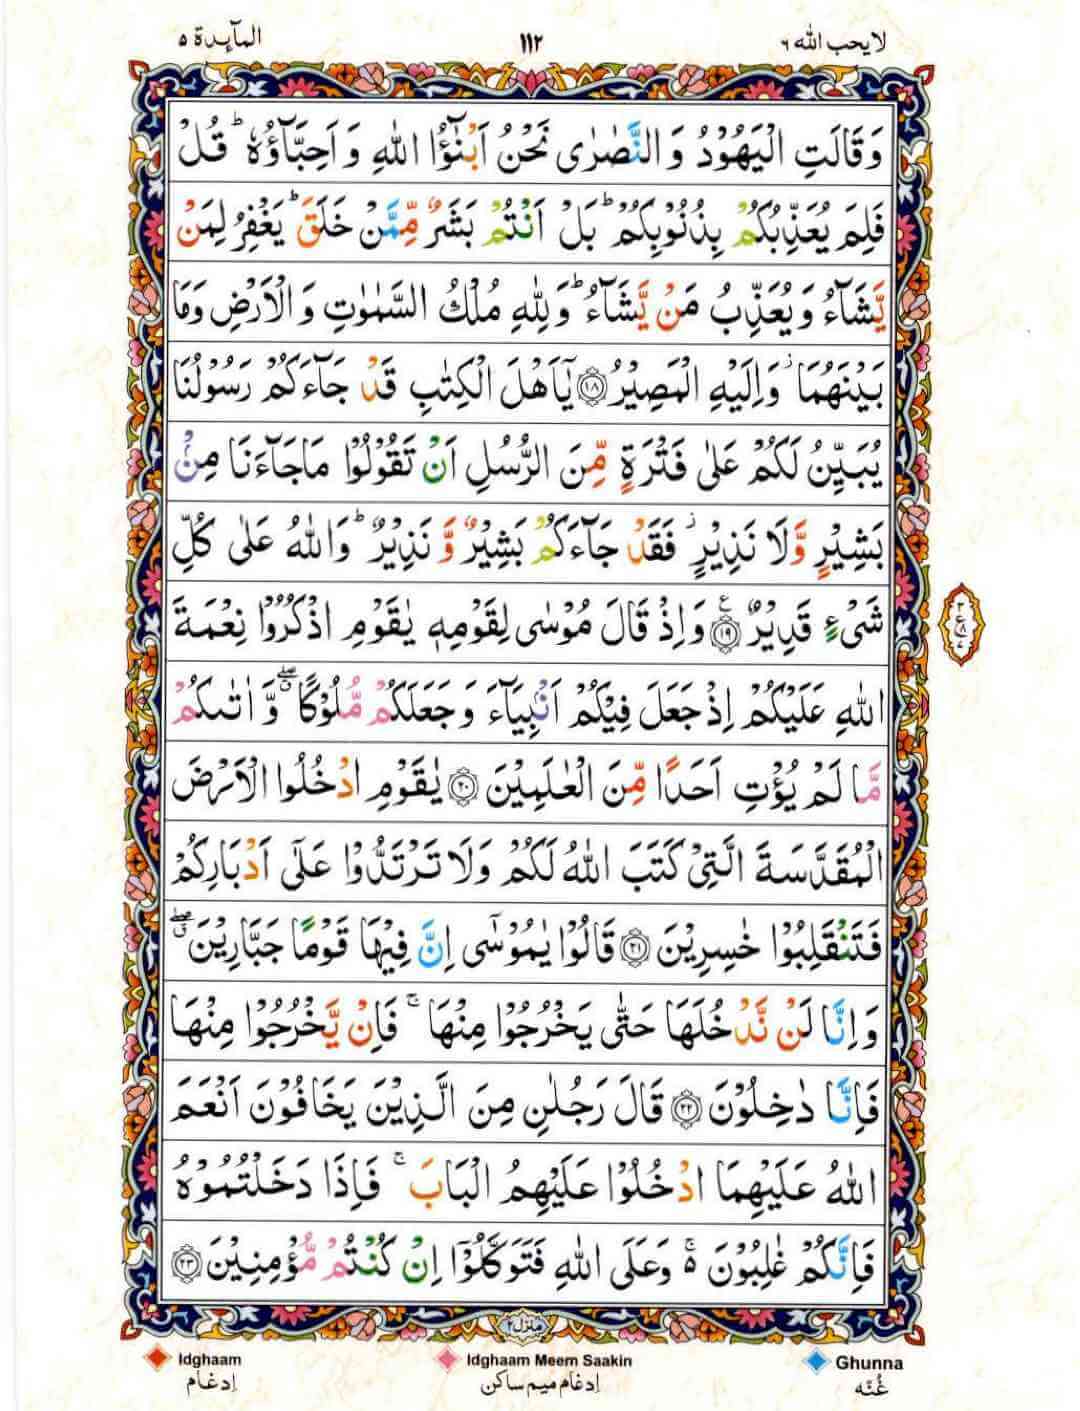 المآىِٕدة ٥
١١٢
لا يحب الله ٦
وَقَالَتِ الْيَهُوْدُ وَ النَّصٰرٰى نَحْنُ اَبْنٰٓؤُا اللّٰهِ وَ اَحِبَّآؤُهٗ ؕ قُلْ
فَلِمَ يُعَذِّبُكُمْ بِذُنُوْبِكُمْ ؕ بَلْ اَنْتُمْ بَشَرٌ مِّمَّنْ خَلَقَ ؕ يَغْفِرُ لِمَنْ
يَّشَآءُ وَ يُعَذِّبُ مَنْ يَّشَآءُ ؕ وَلِلّٰهِ مُلْكُ السَّمٰوٰتِ وَ الْاَرْضِ وَمَا
بَيْنَهُمَا ؗ وَاِلَيْهِ الْمَصِيْرُ ﴿۱۸﴾ يٰۤاَهْلَ الْكِتٰبِ قَدْ جَآءَكُمْ رَسُوْلُنَا
يُبَيِّنُ لَكُمْ عَلٰى فَتْرَةٍ مِّنَ الرُّسُلِ اَنْ تَقُوْلُوْا مَاجَآءَنَا مِنْۢ
بَشِيْرٍ وَّلَا نَذِيْرٍ ؗ فَقَدْ جَآءَكُمْ بَشِيْرٌ وَّ نَذِيْرٌ ؕ وَاللّٰهُ عَلٰى كُلِّ
شَىْءٍ قَدِيْرٌ ﴿۱۹﴾ ع وَاِذْ قَالَ مُوْسٰى لِقَوْمِهٖ يٰقَوْمِ اذْكُرُوْا نِعْمَةَ
اللّٰهِ عَلَيْكُمْ اِذْ جَعَلَ فِيْكُمْ اَنْۢبِيَآءَ وَ جَعَلَكُمْ مُّلُوْكًا ۖۗ وَّ اٰتٰىكُمْ
مَّا لَمْ يُؤْتِ اَحَدًا مِّنَ الْعٰلَمِيْنَ ﴿۲۰﴾ يٰقَوْمِ ادْخُلُوا الْاَرْضَ
الْمُقَدَّسَةَ الَّتِىْ كَتَبَ اللّٰهُ لَكُمْ وَلَا تَرْتَدُّوْا عَلٰٓى اَدْبَارِكُمْ
فَتَنْقَلِبُوْا خٰسِرِيْنَ ﴿۲۱﴾ قَالُوْا يٰمُوْسٰٓى اِنَّ فِيْهَا قَوْمًا جَبَّارِيْنَ ۖۗ
وَ اِنَّا لَنْ نَّدْخُلَهَا حَتّٰى يَخْرُجُوْا مِنْهَا ۚ فَاِنْ يَّخْرُجُوْا مِنْهَا
فَاِنَّا دٰخِلُوْنَ ﴿۲۲﴾ قَالَ رَجُلٰنِ مِنَ الَّذِيْنَ يَخَافُوْنَ اَنْعَمَ
اللّٰهُ عَلَيْهِمَا ادْخُلُوْا عَلَيْهِمُ الْبَابَ ۚ فَاِذَا دَخَلْتُمُوْهُ
فَاِنَّكُمْ غٰلِبُوْنَ ۚ۬ وَعَلَى اللّٰهِ فَتَوَكَّلُوْۤا اِنْ كُنْتُمْ مُّؤْمِنِيْنَ ﴿۲۳﴾
٣
ع
٨
٧
منزل ٢
Idghaam
Idghaam Meem Saakin
Ghunna
اِدغام
اِدغام میم ساکن
غُنّه